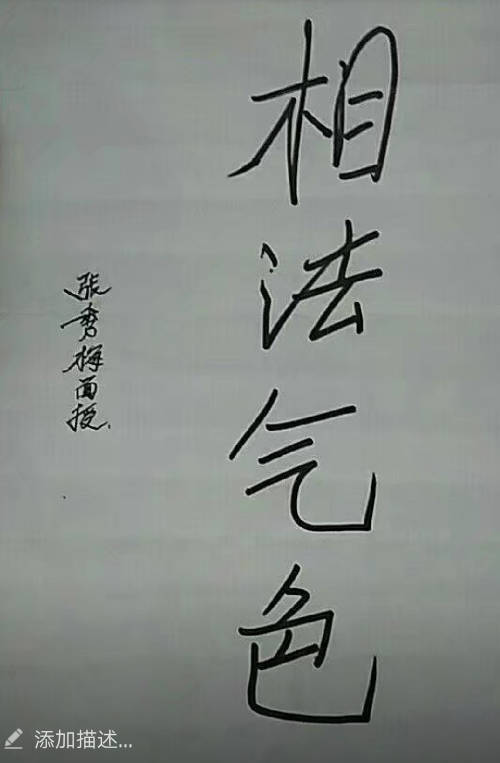 相法气色
张秀梅面授.
添加描述...